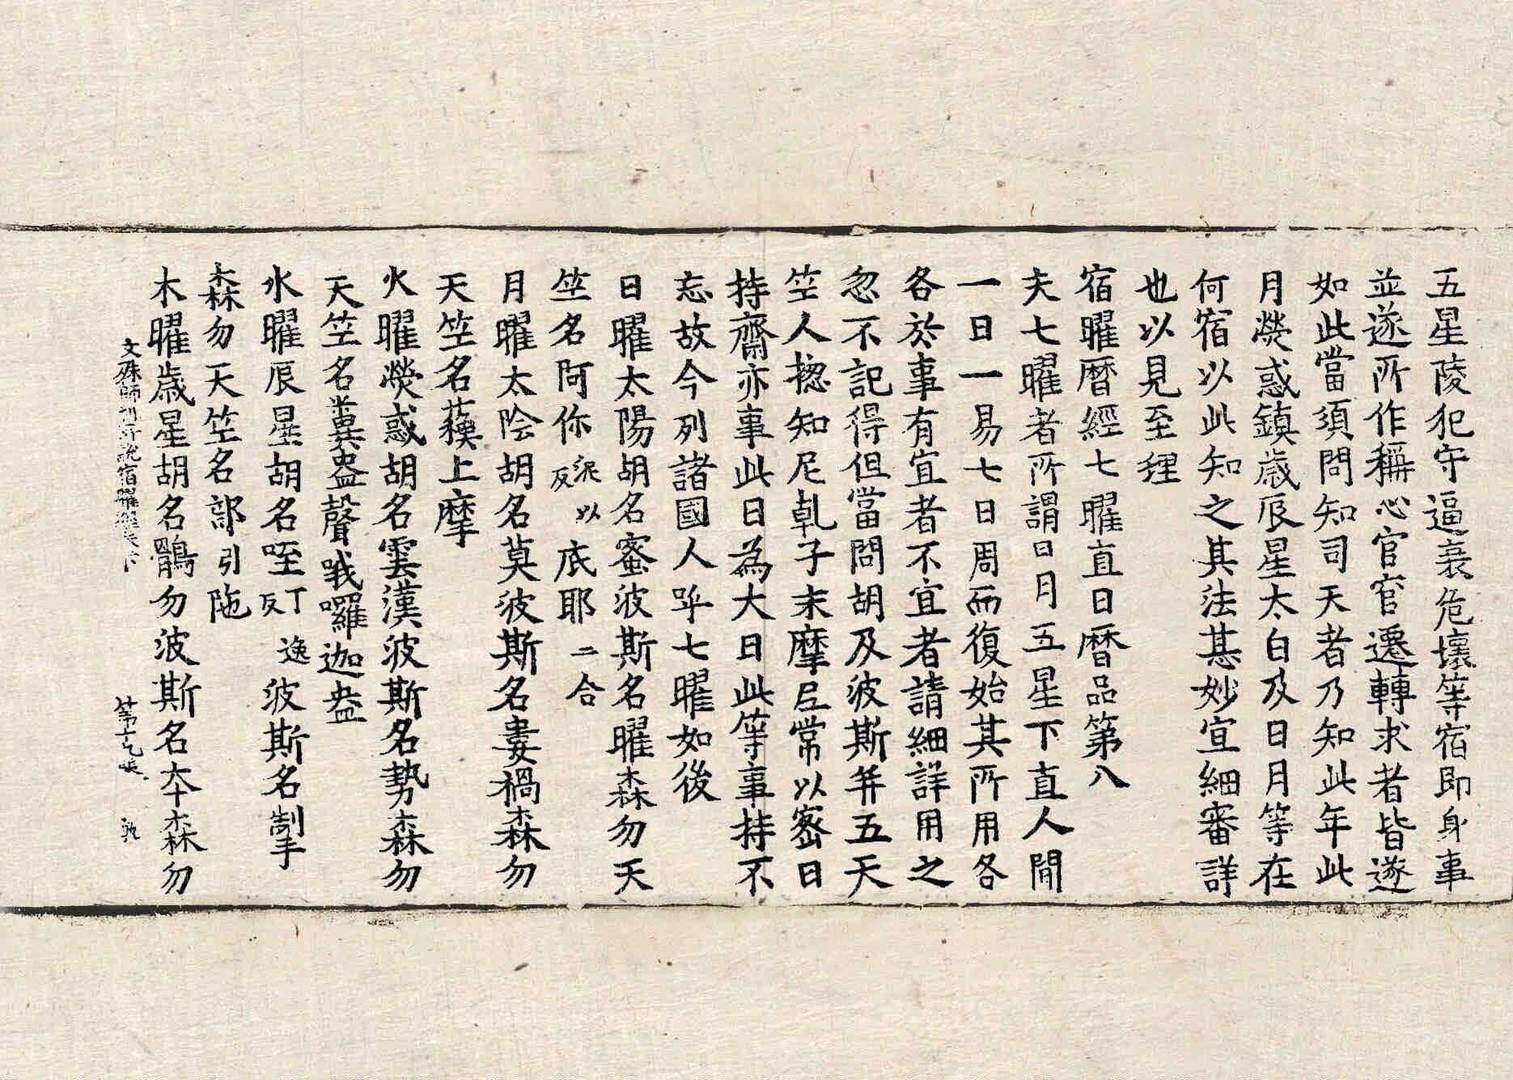 五星陵犯守逼衰危壞等宿即身事
並遂所作稱心官宦遷轉求者皆遂
如此當須問知司天者乃知此年此
月熒惑鎮歲辰星太白及日月等在
何宿以此知之其法甚妙宜細審詳
也以見至理
宿曜曆經七曜直日曆品第八
夫七曜者所謂日月五星下直人間
一日一易七日周而復始其所用各
各於事有宜者不宜者請細詳用之
忽不記得但當問胡及波斯并五天
竺人揔知尼乹子末摩尼常以密日
持齋亦事此日為大日此等事持不
忘故今列諸國人呼七曜如後
日曜太陽胡名蜜波斯名曜森勿天
竺名阿你泥以反底耶二合
月曜太陰胡名莫波斯名婁禍森勿
天竺名蘓上摩
火曜熒惑胡名雲漢波斯名勢森勿
天竺名糞盎聲哦囉迦盎
水曜辰星胡名咥丁逸反波斯名掣
森勿天竺名部引陁
木曜歲星胡名鶻勿波斯名本森勿
文殊師利所說宿曜經卷下 第十九張